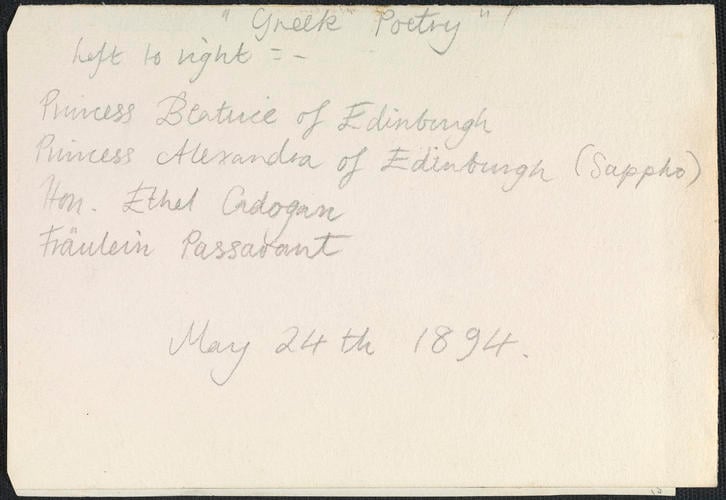 "Greek Poetry"
Left to right = -
Princess Beatrice of Edinburgh
Princess Alexandra of Edinburgh (Sappho)
Hon. Ethel Cadogan
Fräulein Passavant
May 24th 1894.